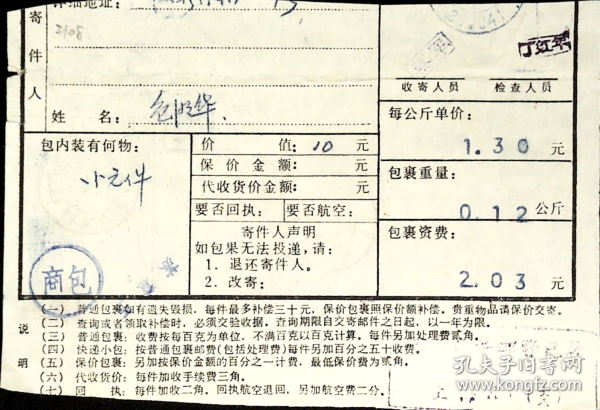 详细地址：
寄件人
2108
姓 名：
收寄人员 检查人员
丁红军
每公斤单价：
1.30 元
包内装有何物：
小元件
价 值：10 元
保价金额： 元
代收货价金额： 元
要否回执： 要否航空：
寄件人声明
如包果无法投递，请：
1．退还寄件人。
2．改寄：
包裹重量：
0.12 公斤
包裹资费：
2.03 元
商包
说明
(一) 普通包裹如有遗失毁损，每件最多补偿三十元，保价包裹照保价额补偿。贵重物品请保价交寄。
(二) 查询或者领取补偿时，必须交验收据。查询期限自交寄邮件之日起，以一年为限。
(三) 普通包裹：收费按每百克为单位，不满百克以百克计算。每件另加处理费贰角。
(四) 快递小包：按普通包裹邮费(包括处理费)每件另加百分之五十收费。
(五) 保价包裹：另加按保价金额的百分之一计费，最低保价费为贰角。
(六) 代收货价：每件加收手续费三角。
(七) 回 执：每件加收二角。回执航空退回，另加航空费二分。
孔夫子旧书网